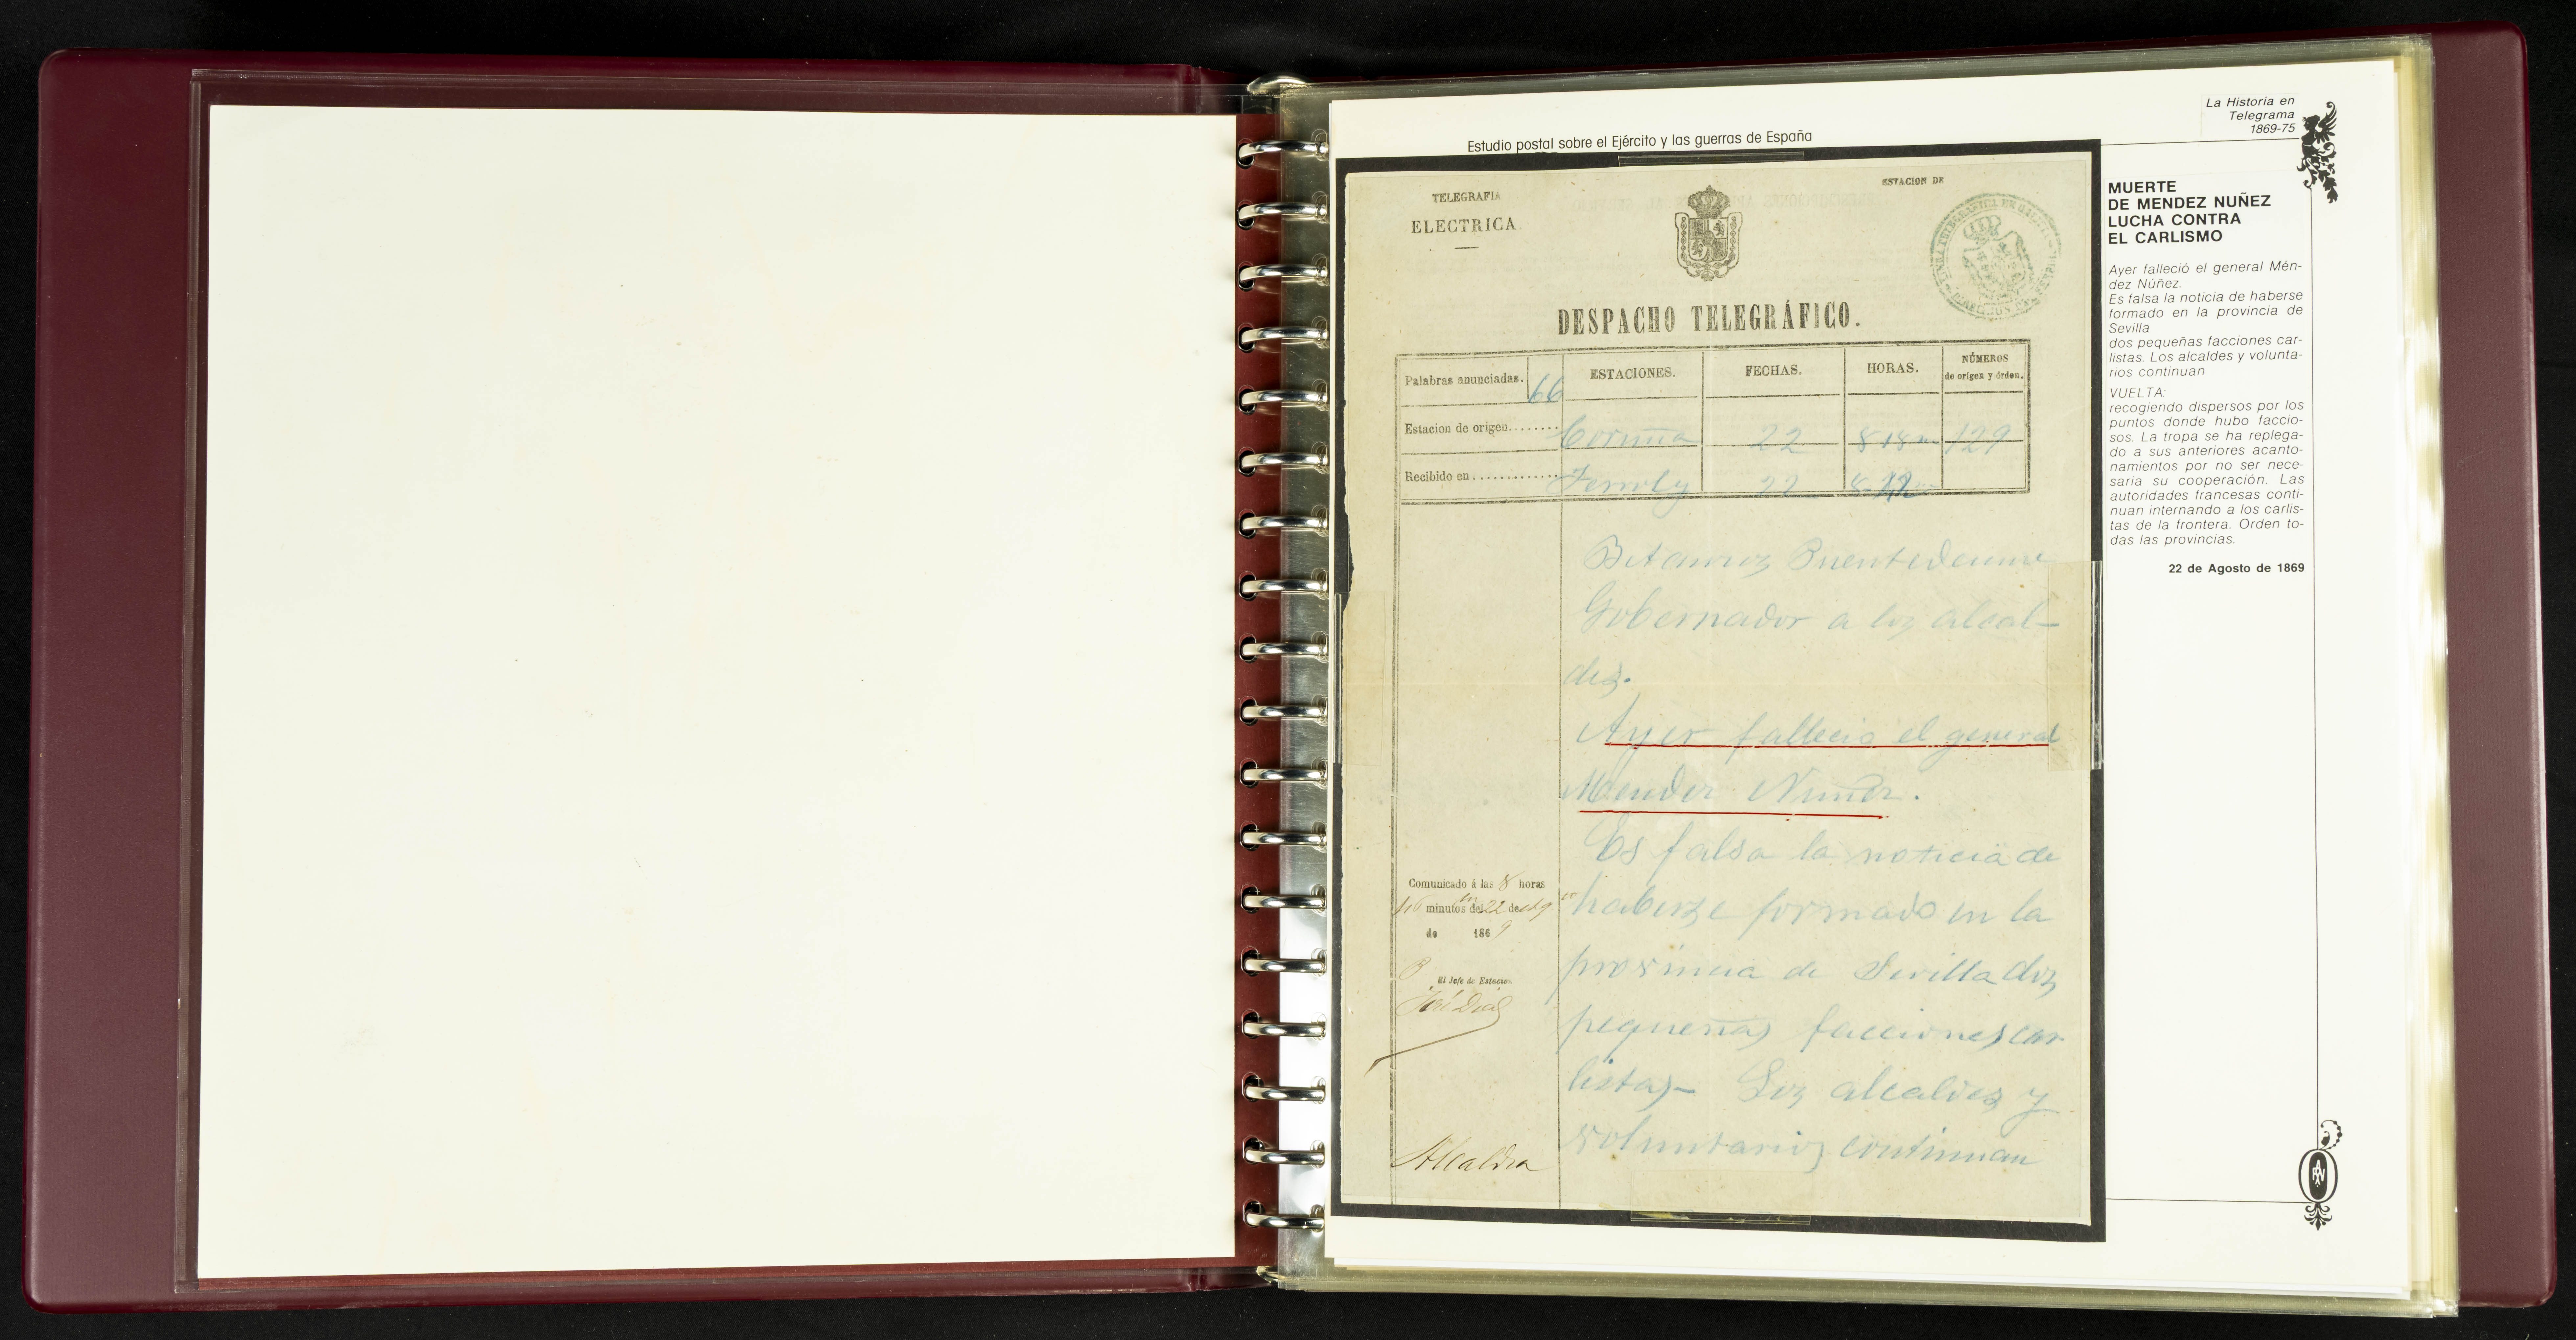 La Historia en
Telegrama
1869-75
Estudio postal sobre el Ejército y las guerras de España
TELEGRAFIA
ELECTRICA.
ESTACION DE
DESPACHO TELEGRÁFICO.
Palabras anunciadas. 66
ESTACIONES. FECHAS. HORAS. NÚMEROS
de origen y órden.
Estacion de origen........ Coruña 22 8 18 m 129
Recibido en ............. 22
Betanzos Puentedeume
Gobernador a los alcal-
des.
Ayer fallecio el general
Mendez Nuñez.
Es falsa la noticia de
haberse formado en la
provincia de Sevilla dos
pequeñas facciones car
listas- Los alcaldes y
voluntarios continuan
Comunicado á las 8 horas
minutos del 22 de
de 1869
El Jefe de Estacion
José
Alcaldia
MUERTE
DE MENDEZ NUÑEZ
LUCHA CONTRA
EL CARLISMO
Ayer falleció el general Mén-
dez Núñez.
Es falsa la noticia de haberse
formado en la provincia de
Sevilla
dos pequeñas facciones car-
listas. Los alcaldes y volunta-
rios continuan
VUELTA:
recogiendo dispersos por los
puntos donde hubo faccio-
sos. La tropa se ha replega-
do a sus anteriores acanto-
namientos por no ser nece-
saria su cooperación. Las
autoridades francesas conti-
nuan internando a los carlis-
tas de la frontera. Orden to-
das las provincias.
22 de Agosto de 1869